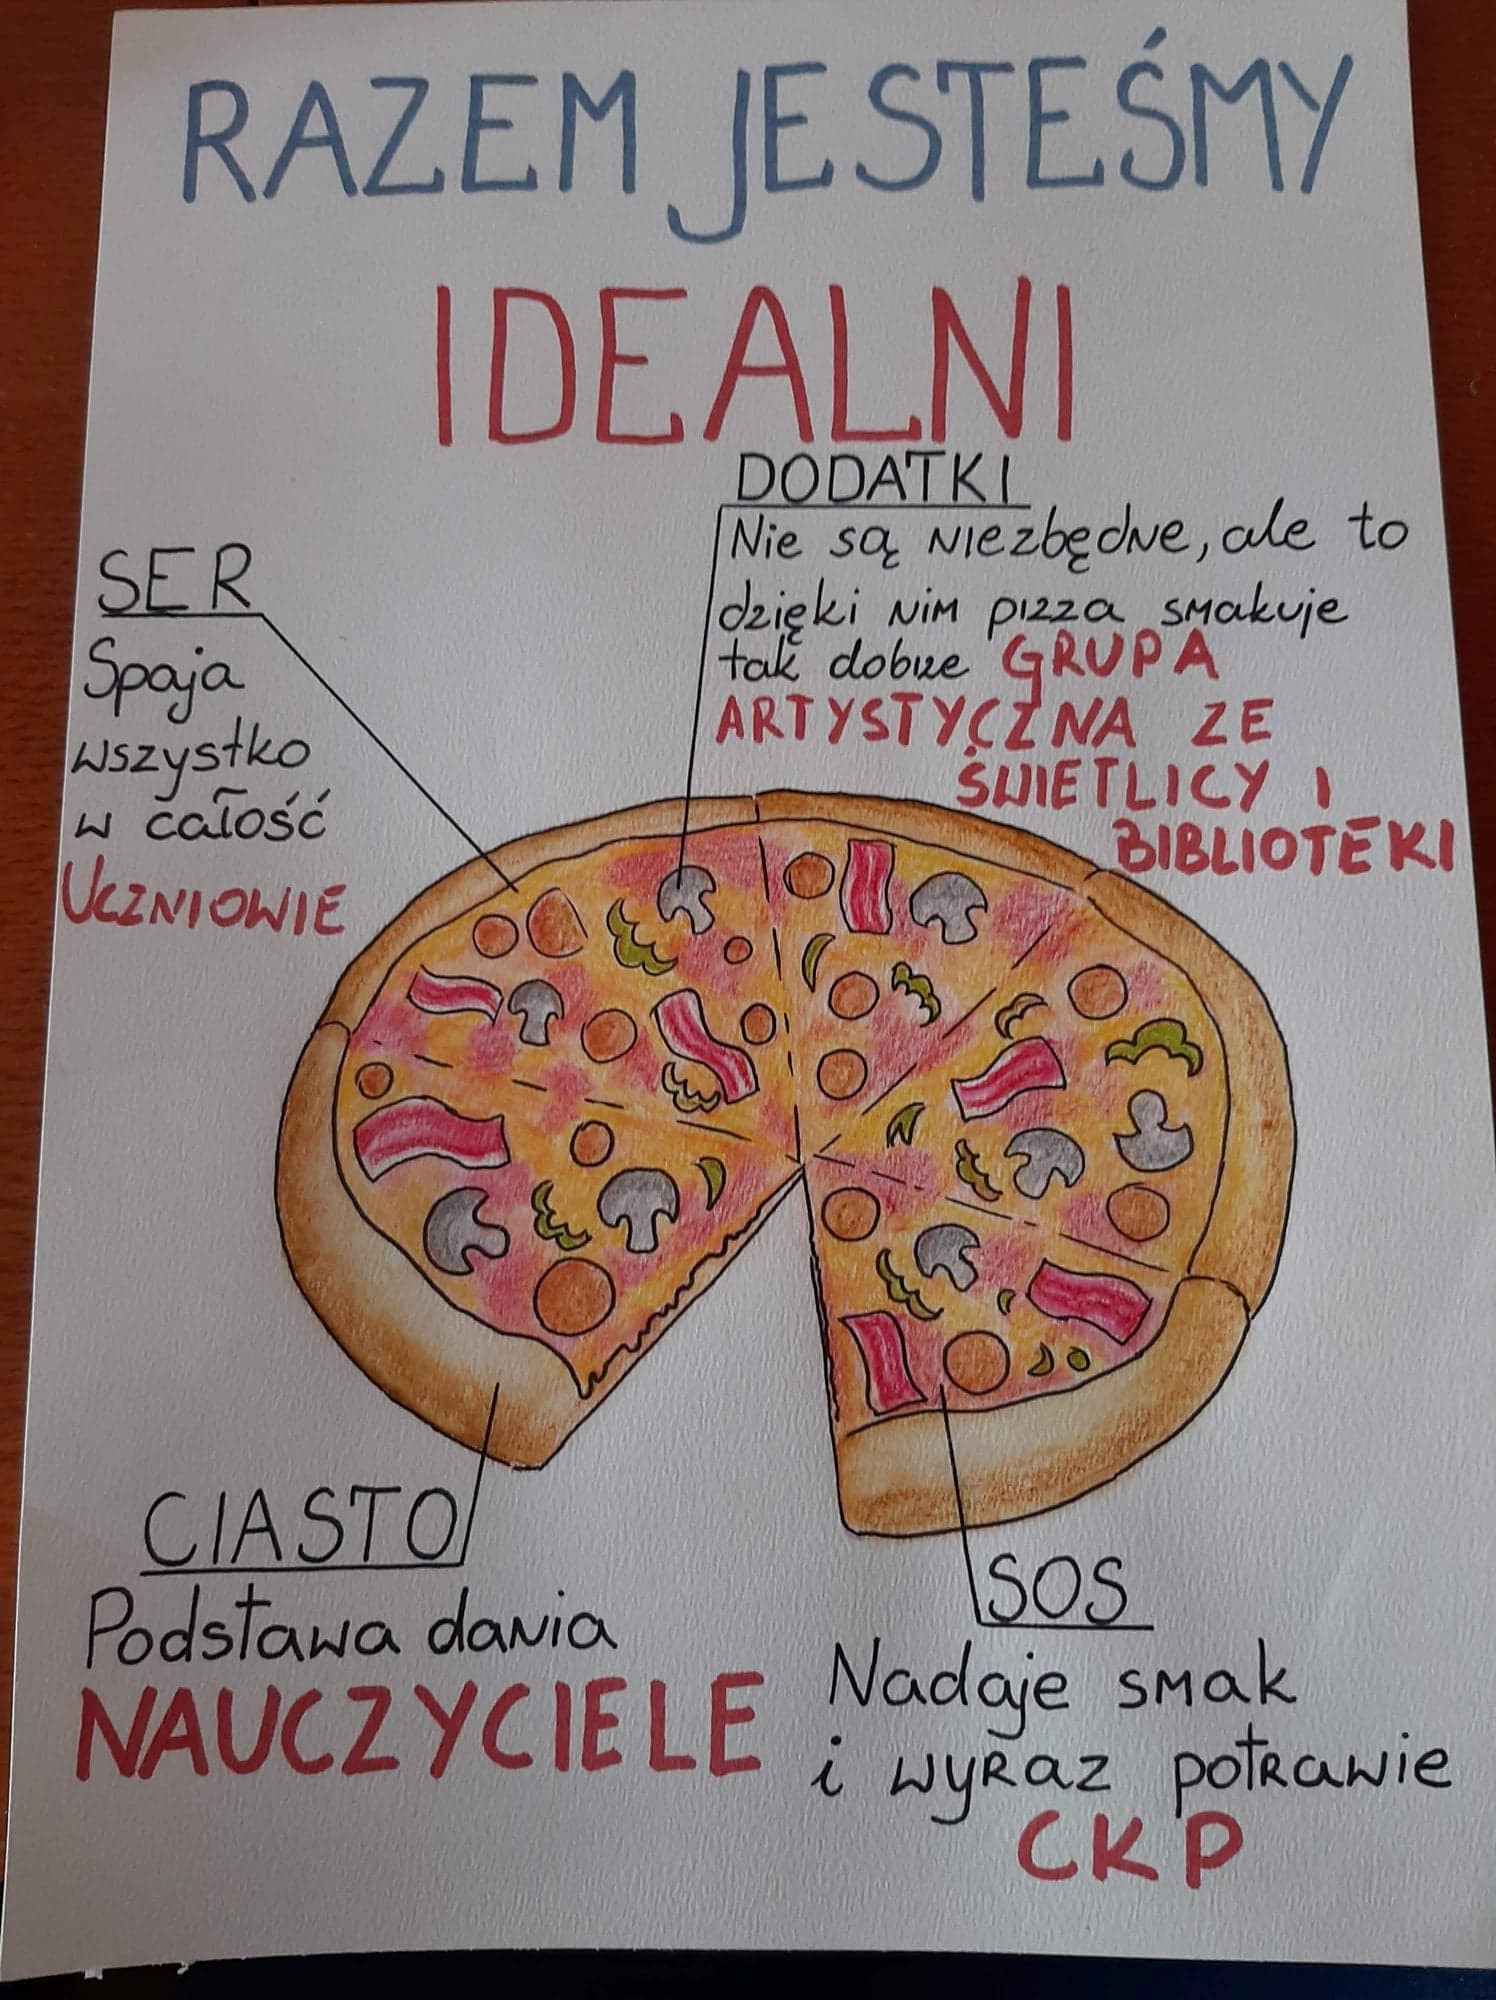 RAZEM JESTEŚMY
IDEALNI
DODATKI
Nie są niezbędne, ale to
dzięki nim pizza smakuje
tak dobrze GRUPA
ARTYSTYCZNA ZE
ŚWIETLICY I
BIBLIOTEKI
SER
Spaja
wszystko
w całość
UCZNIOWIE
CIASTO
Podstawa dania
NAUCZYCIELE
SOS
Nadaje smak
i wyraz potrawie
CKP